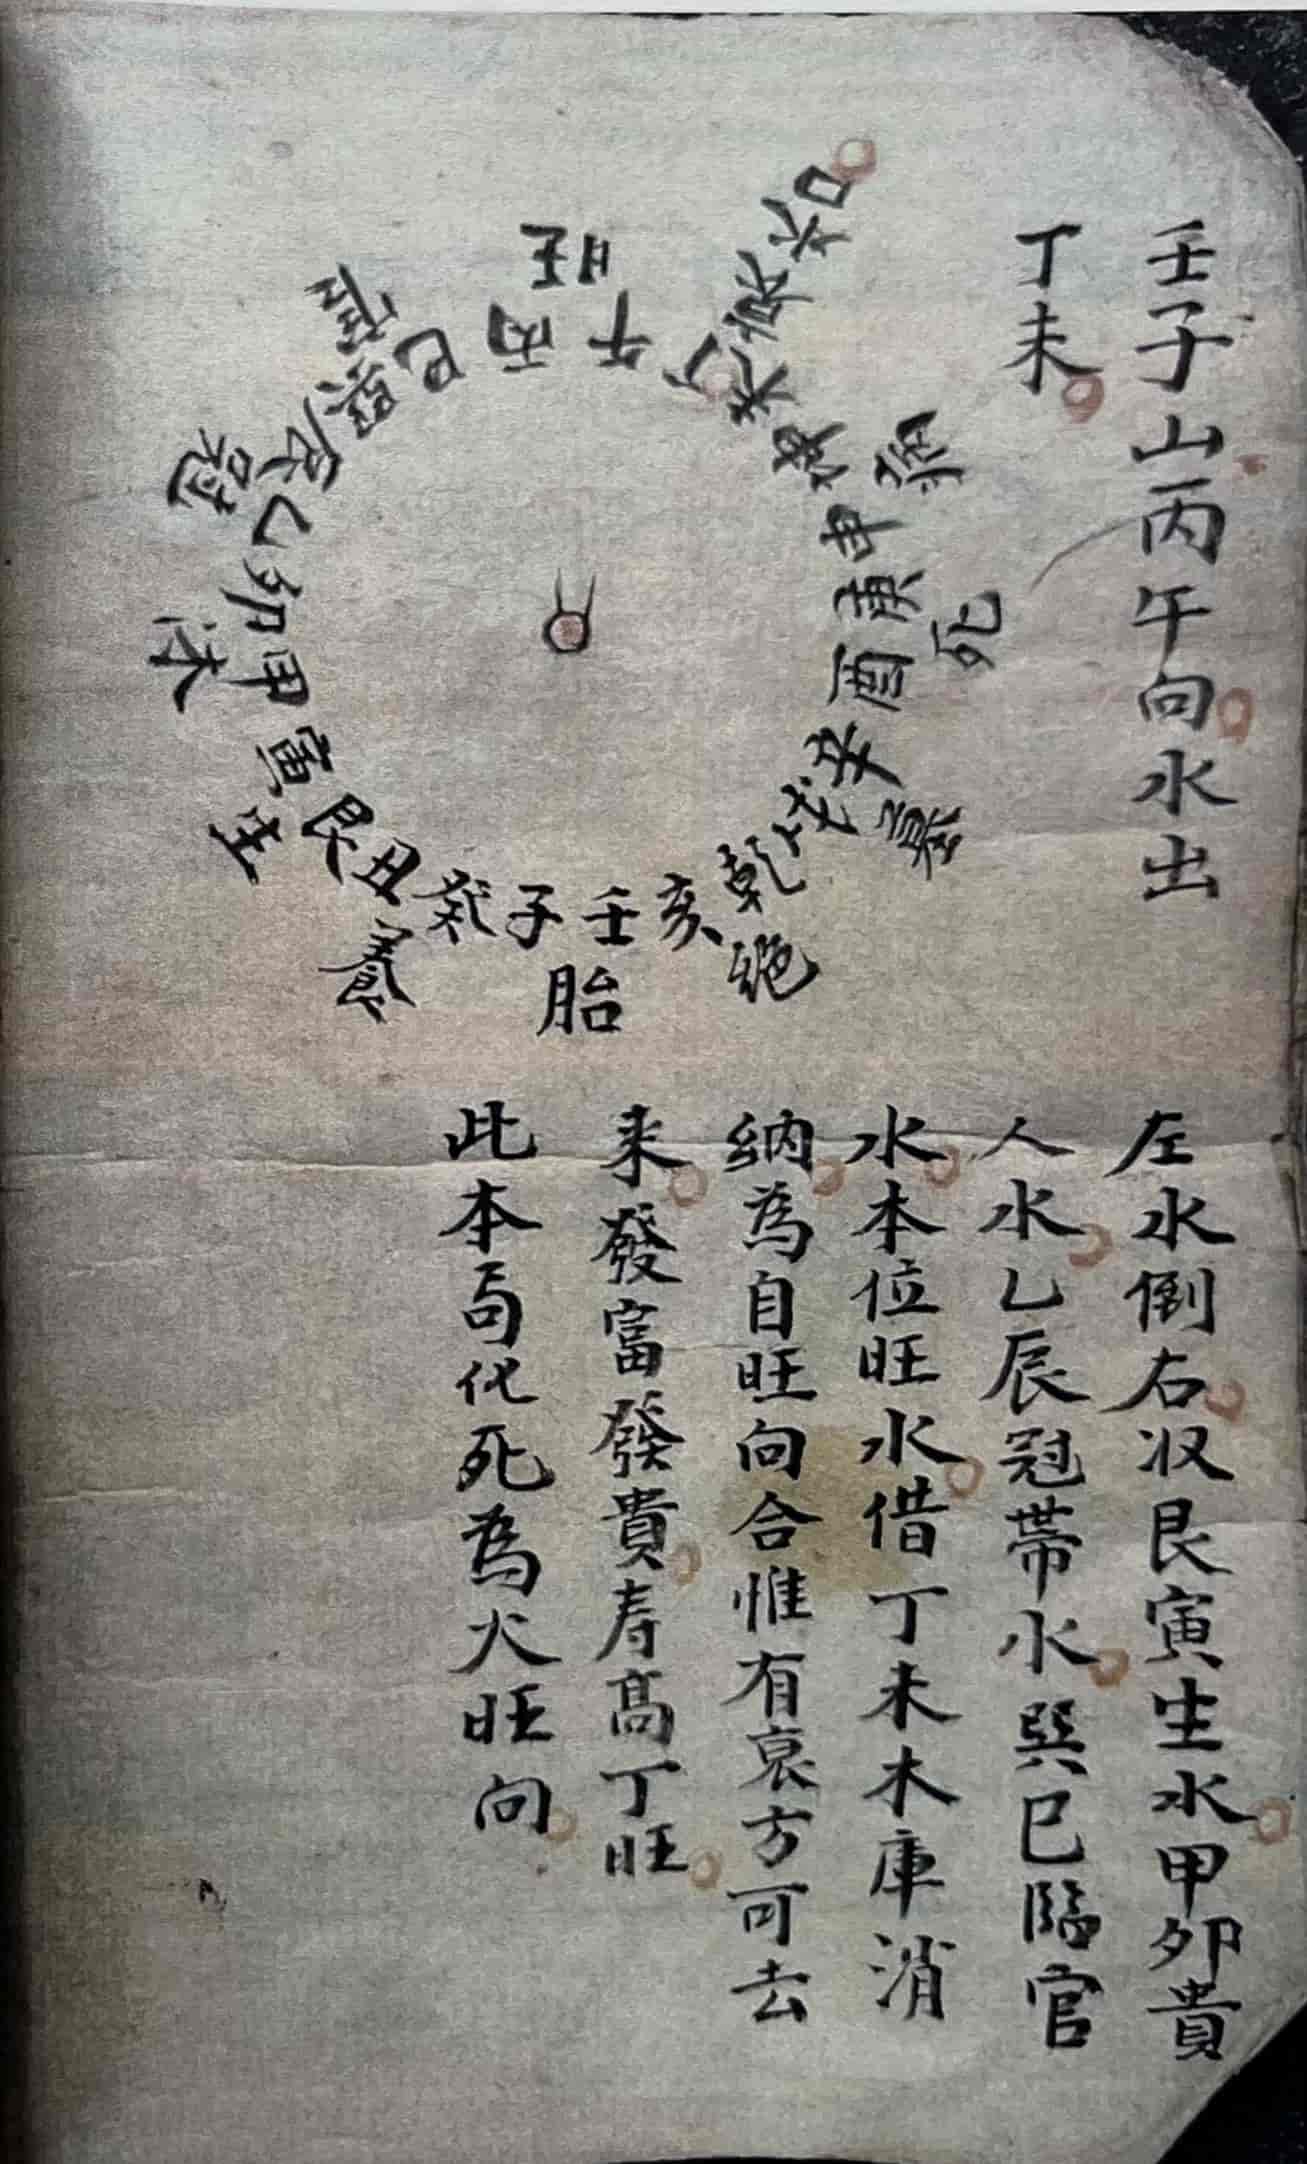 壬子山丙午向水出
丁未
吉水衰
旺
午丙
丁未坤申庚酉辛戌乾亥壬子癸丑艮寅甲卯乙辰巽巳
病
死
墓
絕
胎
養
生
沐
冠
官
左水倒右収艮寅生水甲卯貴
人水乙辰冠帶水巽巳臨官
水本位旺水借丁未木庫消
納為自旺向合惟有衰方可去
来發富發貴寿高丁旺
此本局化死為火旺向